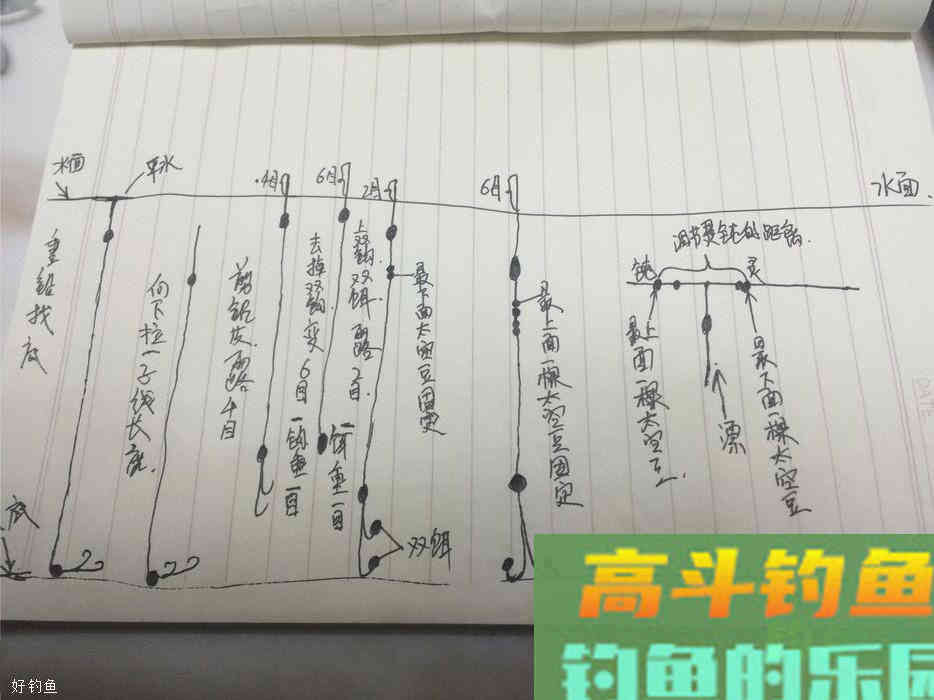 水面
平水
4目
6目
2目
6目
水面
重铅找底
向下拉一子线长度
剪铅皮 露4目
钩重一目
去掉双钩变6目
饵重一目
上双钩双饵 露2目
最下面太空豆固定
双饵
最上面一棵太空豆固定
调节灵钝的距离
钝
灵
最上面一棵太空豆
漂
最下面一棵太空豆
底
高斗钓鱼
钓鱼的乐园
好钓鱼